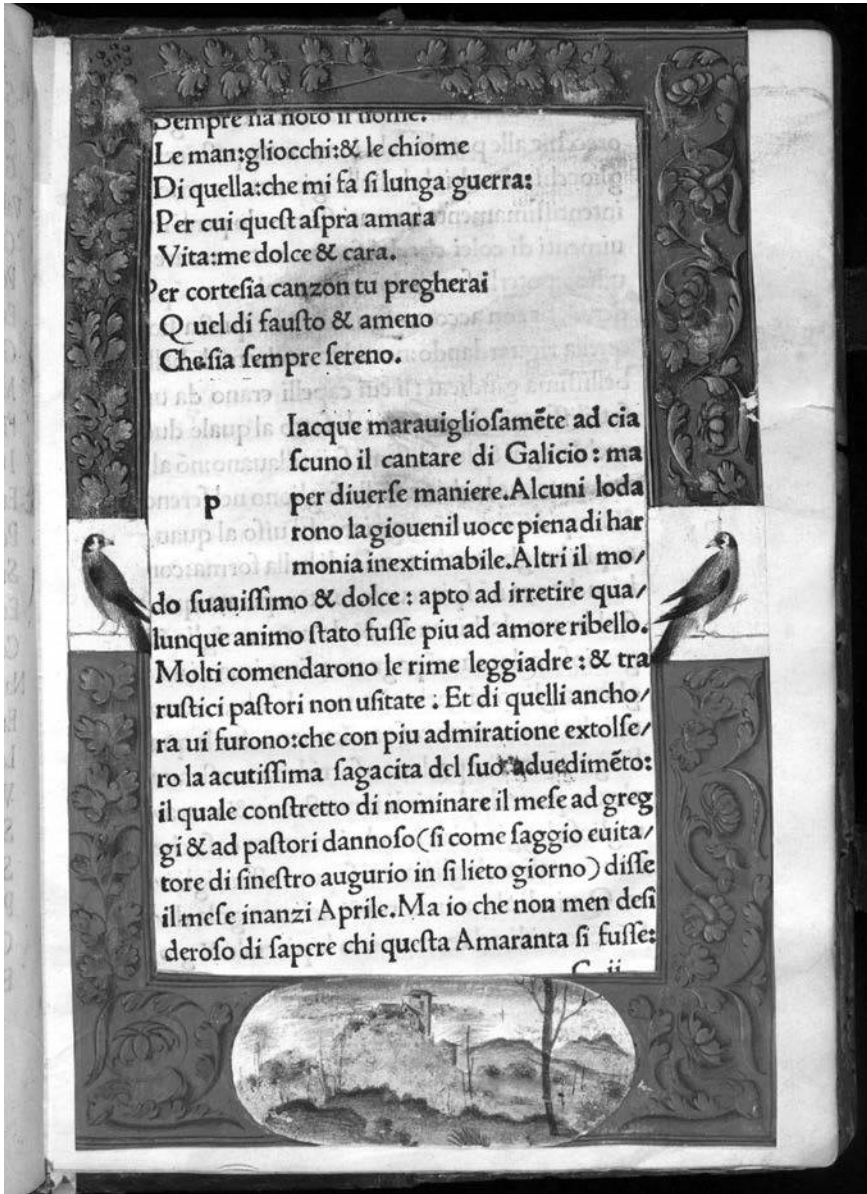 Sempre ha noto il nome.
Le man:gliocchi:& le chiome
Di quella:che mi fa ſi lunga guerra:
Per cui queſt aſpra amara
Vita:me dolce & cara.
Per corteſia canzon tu pregherai
Quel di fauſto & ameno
Cheſia ſempre ſereno.
Iacque marauiglioſamēte ad cia
ſcuno il cantare di Galicio : ma
p per diuerſe maniere.Alcuni loda
rono la giouenil uoce piena di har
monia inextimabile.Altri il mo/
do ſuauiſſimo & dolce : apto ad irretire qua/
lunque animo ſtato fuſſe piu ad amore ribello.
Molti comendarono le rime leggiadre : & tra
ruſtici paſtori non uſitate : Et di quelli ancho/
ra ui furono:che con piu admiratione extolſe/
ro la acutiſſima ſagacita del ſuo aduedimēto:
il quale conſtretto di nominare il meſe ad greg
gi & ad paſtori dannoſo(ſi come ſaggio euita/
tore di ſineſtro augurio in ſi lieto giorno) diſſe
il meſe inanzi Aprile.Ma io che non men deſi
deroſo di ſapere chi queſta Amaranta ſi fuſſe:
C ii